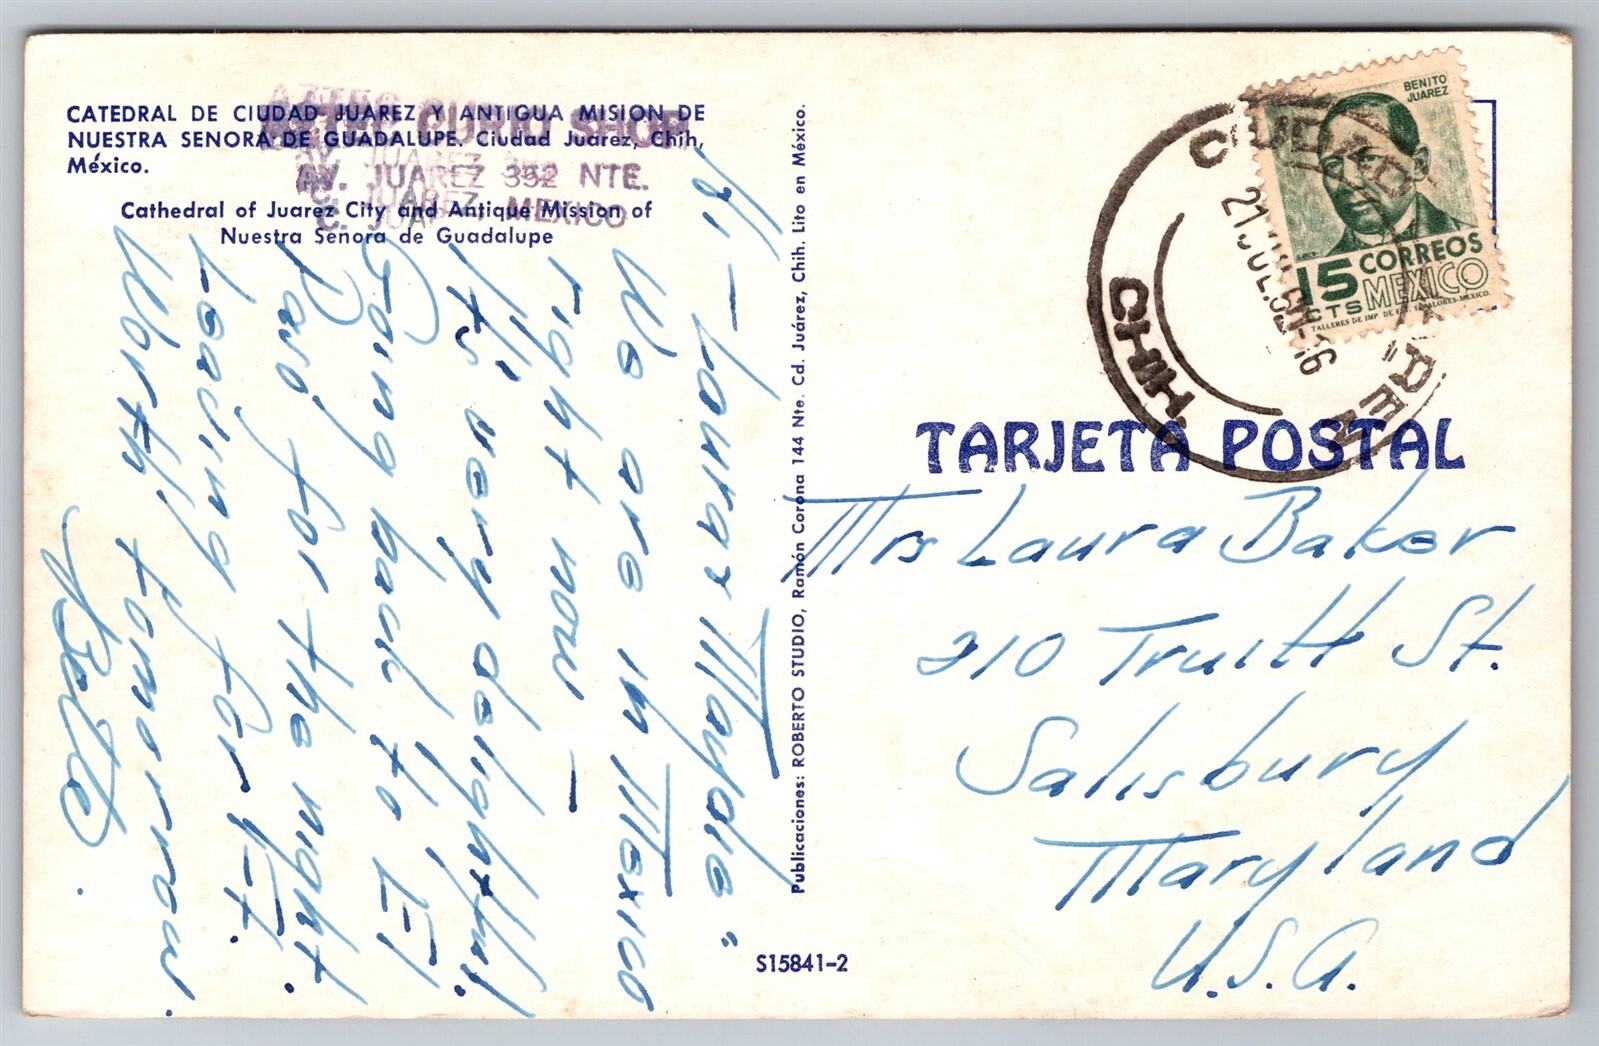 CATEDRAL DE CIUDAD JUAREZ Y ANTIGUA MISION DE
NUESTRA SENORA DE GUADALUPE. Ciudad Juarez, Chih,
México.
Cathedral of Juarez City and Antique Mission of
Nuestra Senora de Guadalupe
AZTEC CURIO SHOP
AV. JUAREZ 352 NTE.
C. JUAREZ, MEXICO
Hi - Laura & Maydie"
We are in Mexico
right now -
It's very delightful.
Going back to El
Paso for the night.
Leaving for Ft.
Worth tomorrow.
Publicaciones: ROBERTO STUDIO, Ramón Corona 144 Nte. Cd. Juárez, Chih. Lito en México.
S15841-2
BENITO
JUAREZ
15 CORREOS
CTS MEXICO
TALLERES DE IMP. DE EST. VALORES-MEXICO.
CIUDAD JUAREZ
CHIH.
21 JUL
16
TARJETA POSTAL
Mrs Laura Baker
210 Truitt St.
Salisbury
Maryland
U.S.A.